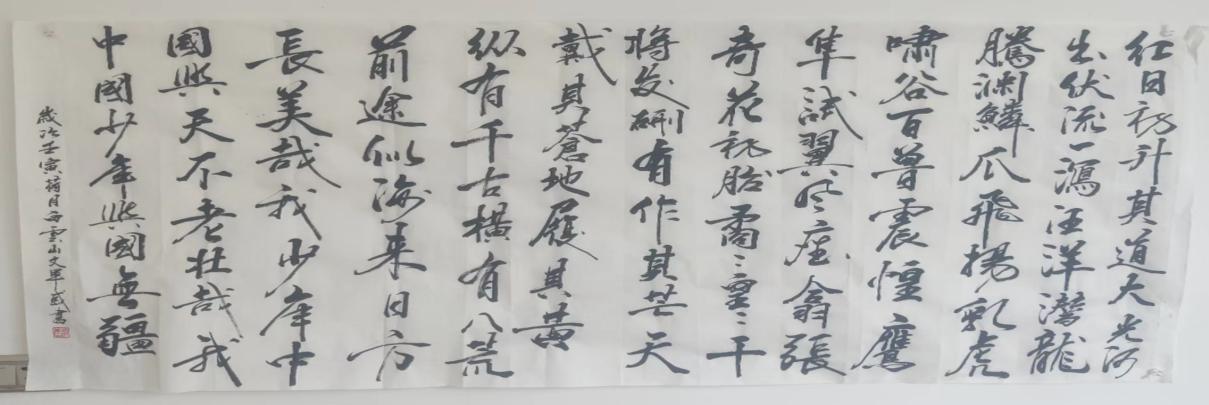 红日初升其道大光河
出伏流一瀉汪洋潛龍
騰渊鱗爪飛揚乳虎
嘯谷百兽震惶鷹
隼試翼风塵翕張
奇花初胎矞〻皇〻干
將发硎有作其芒天
戴其蒼地履其黄
纵有千古橫有八荒
前途似海来日方
長美哉我少年中
國與天不老壮哉我
中國少年與國無疆
歲次壬寅荷月雲山文軍書